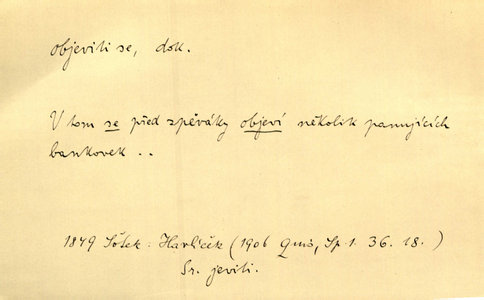 objeviti se, dok.
V tom se před zpěváky objeví několik panujících
bankovek ..
1849 Šotek: Havlíček (1906 Quis, Sp 1. 36. 18.)
Sr. jeviti.